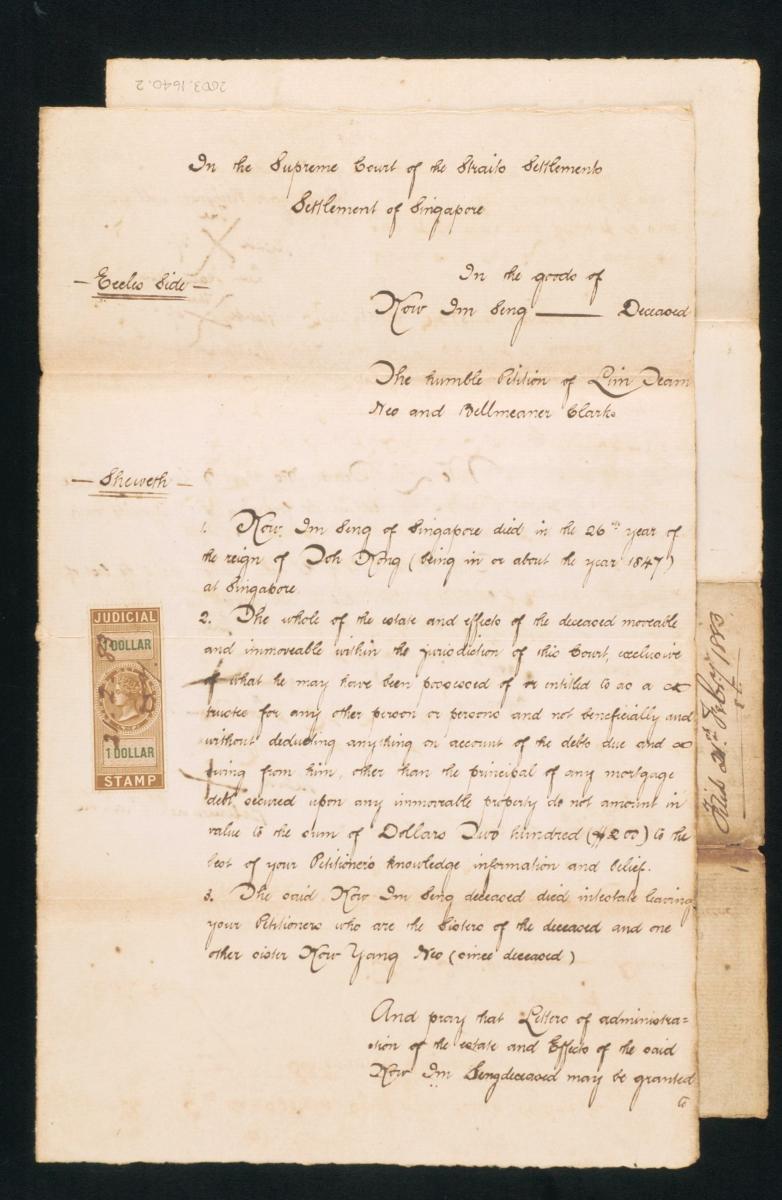 2003.1640.2
In the Supreme Court of the Straits Settlements
Settlement of Singapore
- Eccles Side -
In the goods of
Kow Im Seng ——— Deceased
The humble Petition of Lim Team
Neo and Bellmeaner Clarke
- Sheweth -
1. Kow Im Seng of Singapore died in the 26th year of
the reign of Toh Kong (being in or about the year 1847)
at Singapore
2. The whole of the estate and effects of the deceased moveable
and immoveable within the jurisdiction of this Court, exclusive
of what he may have been possessed of or entitled to as a
trustee for any other person or persons and not beneficially and
without deducting anything on account of the debts due and
owing from him, other than the principal of any mortgage
debt secured upon any immoveable property do not amount in
value to the sum of Dollars Two hundred ($200) to the
best of your Petitioners knowledge information and belief.
3. The said Kow Im Seng deceased died intestate leaving
your Petitioners who are the Sisters of the deceased and one
other sister Kow Yang Neo (since deceased)
And pray that Letters of administra=
tion of the estate and Effects of the said
Kow Im Seng deceased may be granted
to
JUDICIAL
1 DOLLAR
1 DOLLAR
STAMP
Filed 21st Febry 1883.